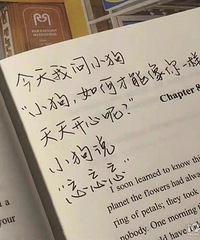 今天我问小狗
"小狗,如何才能像你一样
天天开心呢?"
小狗说
"忘忘忘"
Chapter 8
I soon learned to know this
planet the flowers had always
ring of petals; they took
nobody. One morning
your